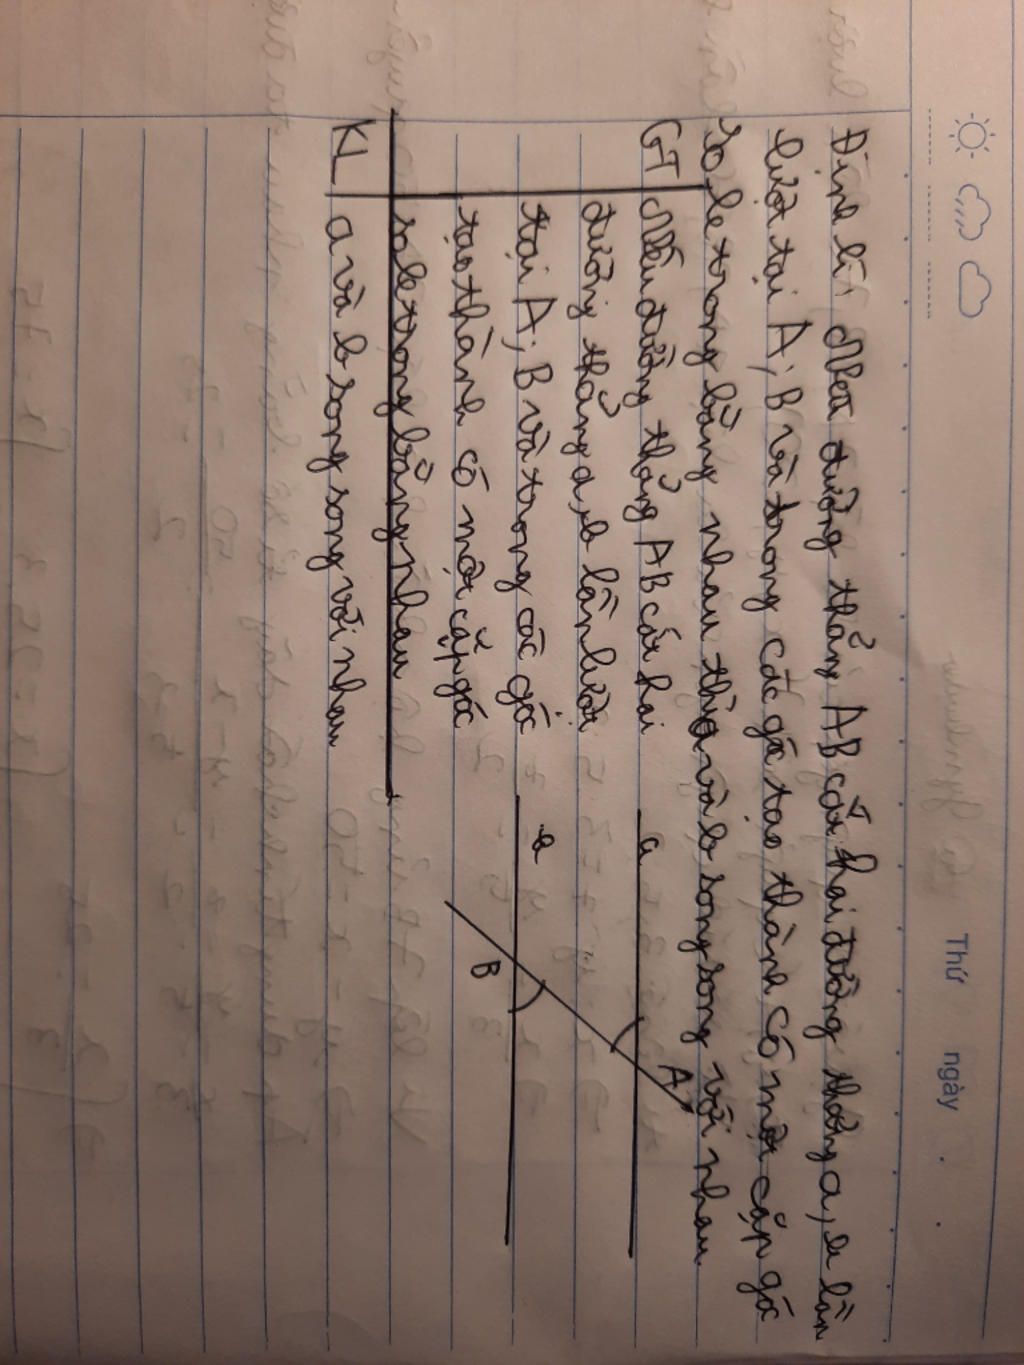 Thứ ngày
Định lí: Nếu đường thẳng AB cắt hai đường thẳng a, b lần
lượt tại A; B và trong các góc tạo thành có một cặp góc
so le trong bằng nhau thì a và b song song với nhau
GT Nếu đường thẳng AB cắt hai
đường thẳng a, b lần lượt
tại A; B và trong các góc
tạo thành có một cặp góc
so le trong bằng nhau
KL a và b song song với nhau
a
A
B